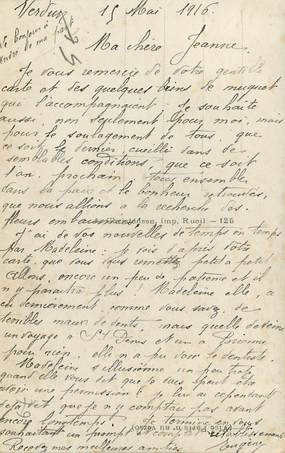 Verdun 15 Mai 1916
Le bonjour à
de ma part
Ma chère Jeanne.
Je vous remercie de votre gentille
carte et des quelques brins de muguet
que l'accompagnaient. Je souhaite
aussi, non seulement pour moi, mais
pour le soulagement de tous, que
ce soit le dernier cueilli dans de
semblables conditions, que ce soit
l'an prochain tous ensemble,
dans la paix et le bonheur retrouvés,
que nous allions à la recherche des
fleurs
imp. Rueil — 125
J'ai de vos nouvelles de temps en temps
par Madeleine; je vois d'après votre
carte, que vous vous remettez petit à petit
Allons, encore un peu de patience et il
n'y paraîtra plus! Madeleine elle, a
eu dernièrement comme vous savez, de
terribles maux de dents, mais quelle déveine
un voyage à St Denis et un à
pour rien, elle n'a pu voir le dentiste.
Madeleine s'illusionne un peu trop
quand elle vous dit que je vais peut être
avoir une permission! je lui ai cependant
déjà dit que je n'y comptais pas avant
encore longtemps. Je termine en vous
souhaitant un prompt et complet rétablissement
Recevez mes meilleures amitiés
Eugène